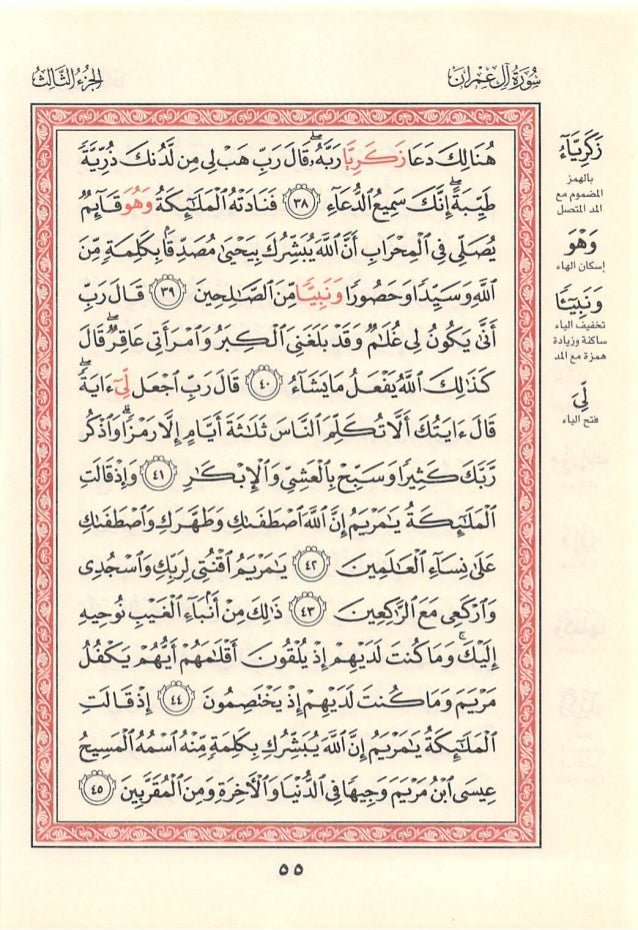 سُورَةُ آلِ عِمْرَان
الجُزْءُ الثَّالِثُ
هُنَالِكَ دَعَا زَكَرِيَّا رَبَّهُۥۖ قَالَ رَبِّ هَبْ لِى مِن لَّدُنكَ ذُرِّيَّةٗ
طَيِّبَةًۖ إِنَّكَ سَمِيعُ ٱلدُّعَآءِ ٣٨ فَنَادَتْهُ ٱلْمَلَـٰٓئِكَةُ وَهُوَ قَآئِمٞ
يُصَلِّى فِى ٱلْمِحْرَابِ أَنَّ ٱللَّهَ يُبَشِّرُكَ بِيَحْيَىٰ مُصَدِّقَۢا بِكَلِمَةٖ مِّنَ
ٱللَّهِ وَسَيِّدٗا وَحَصُورٗا وَنَبِيّٗا مِّنَ ٱلصَّـٰلِحِينَ ٣٩ قَالَ رَبِّ
أَنَّىٰ يَكُونُ لِى غُلَـٰمٞ وَقَدْ بَلَغَنِىَ ٱلْكِبَرُ وَٱمْرَأَتِى عَاقِرٞۖ قَالَ
كَذَٰلِكَ ٱللَّهُ يَفْعَلُ مَا يَشَآءُ ٤٠ قَالَ رَبِّ ٱجْعَل لِّىٓ ءَايَةٗۖ
قَالَ ءَايَتُكَ أَلَّا تُكَلِّمَ ٱلنَّاسَ ثَلَـٰثَةَ أَيَّامٍ إِلَّا رَمْزٗاۗ وَٱذْكُر
رَّبَّكَ كَثِيرٗا وَسَبِّحْ بِٱلْعَشِىِّ وَٱلْإِبْكَـٰرِ ٤١ وَإِذْ قَالَتِ
ٱلْمَلَـٰٓئِكَةُ يَـٰمَرْيَمُ إِنَّ ٱللَّهَ ٱصْطَفَىٰكِ وَطَهَّرَكِ وَٱصْطَفَىٰكِ
عَلَىٰ نِسَآءِ ٱلْعَـٰلَمِينَ ٤٢ يَـٰمَرْيَمُ ٱقْنُتِى لِرَبِّكِ وَٱسْجُدِى
وَٱرْكَعِى مَعَ ٱلرَّٰكِعِينَ ٤٣ ذَٰلِكَ مِنْ أَنۢبَآءِ ٱلْغَيْبِ نُوحِيهِ
إِلَيْكَۚ وَمَا كُنتَ لَدَيْهِمْ إِذْ يُلْقُونَ أَقْلَـٰمَهُمْ أَيُّهُمْ يَكْفُلُ
مَرْيَمَ وَمَا كُنتَ لَدَيْهِمْ إِذْ يَخْتَصِمُونَ ٤٤ إِذْ قَالَتِ
ٱلْمَلَـٰٓئِكَةُ يَـٰمَرْيَمُ إِنَّ ٱللَّهَ يُبَشِّرُكِ بِكَلِمَةٖ مِّنْهُ ٱسْمُهُ ٱلْمَسِيحُ
عِيسَى ٱبْنُ مَرْيَمَ وَجِيهٗا فِى ٱلدُّنْيَا وَٱلْأَخِرَةِ وَمِنَ ٱلْمُقَرَّبِينَ ٤٥
زَكَرِيَّآءُ
بالهمز
المضموم مع
المد المتصل
وَهْوَ
إسكان الهاء
وَنَبِيٓـٔٗا
تخفيف الياء
ساكنة وزيادة
همزة مع المد
لِّىَ
فتح الياء
٥٥